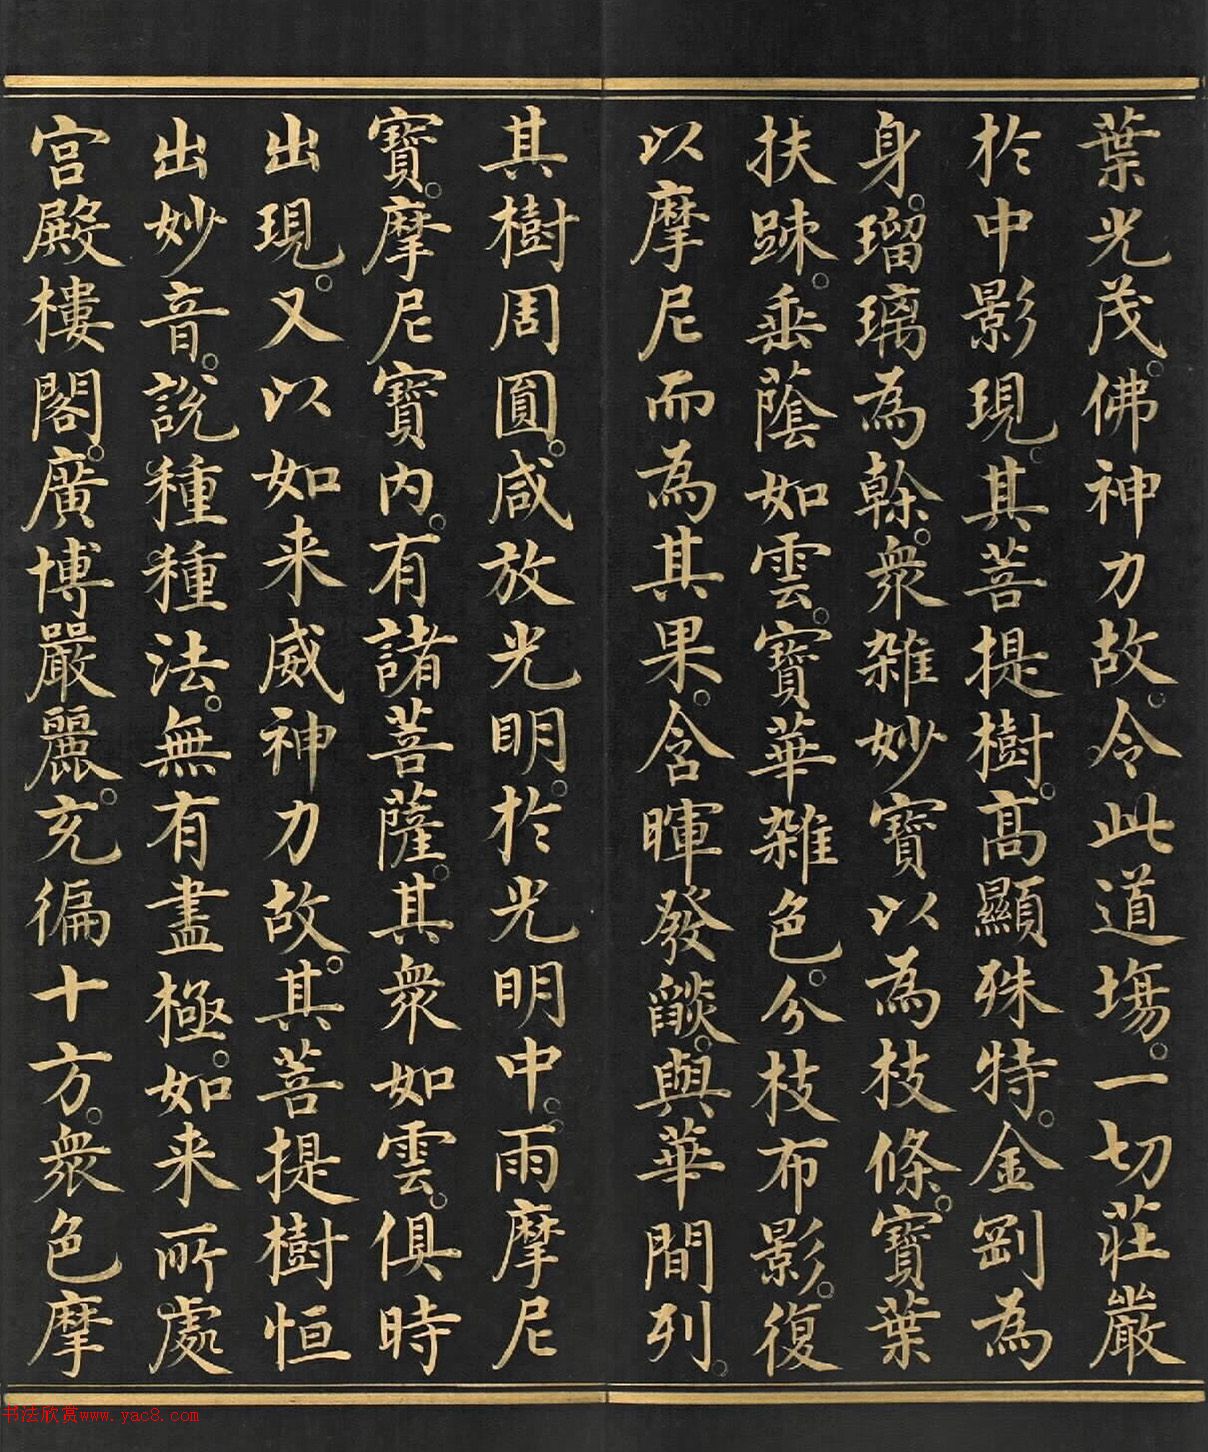 葉光茂。佛神力故。令此道場。一切莊嚴
於中影現。其菩提樹。高顯殊特。金剛為
身。瑠璃為榦。衆雜妙寶以為枝條。寶葉
扶踈。垂蔭如雲。寶華雜色。分枝布影。復
以摩尼而為其果。含暉發燄。與華間列。
其樹周圓。咸放光明。於光明中。雨摩尼
寶。摩尼寶内。有諸菩薩。其衆如雲。俱時
出現。又以如来威神力故。其菩提樹恒
出妙音。說種種法。無有盡極。如来所處
宫殿樓閣。廣博嚴麗。充徧十方。衆色摩
书法欣赏www.yac8.com